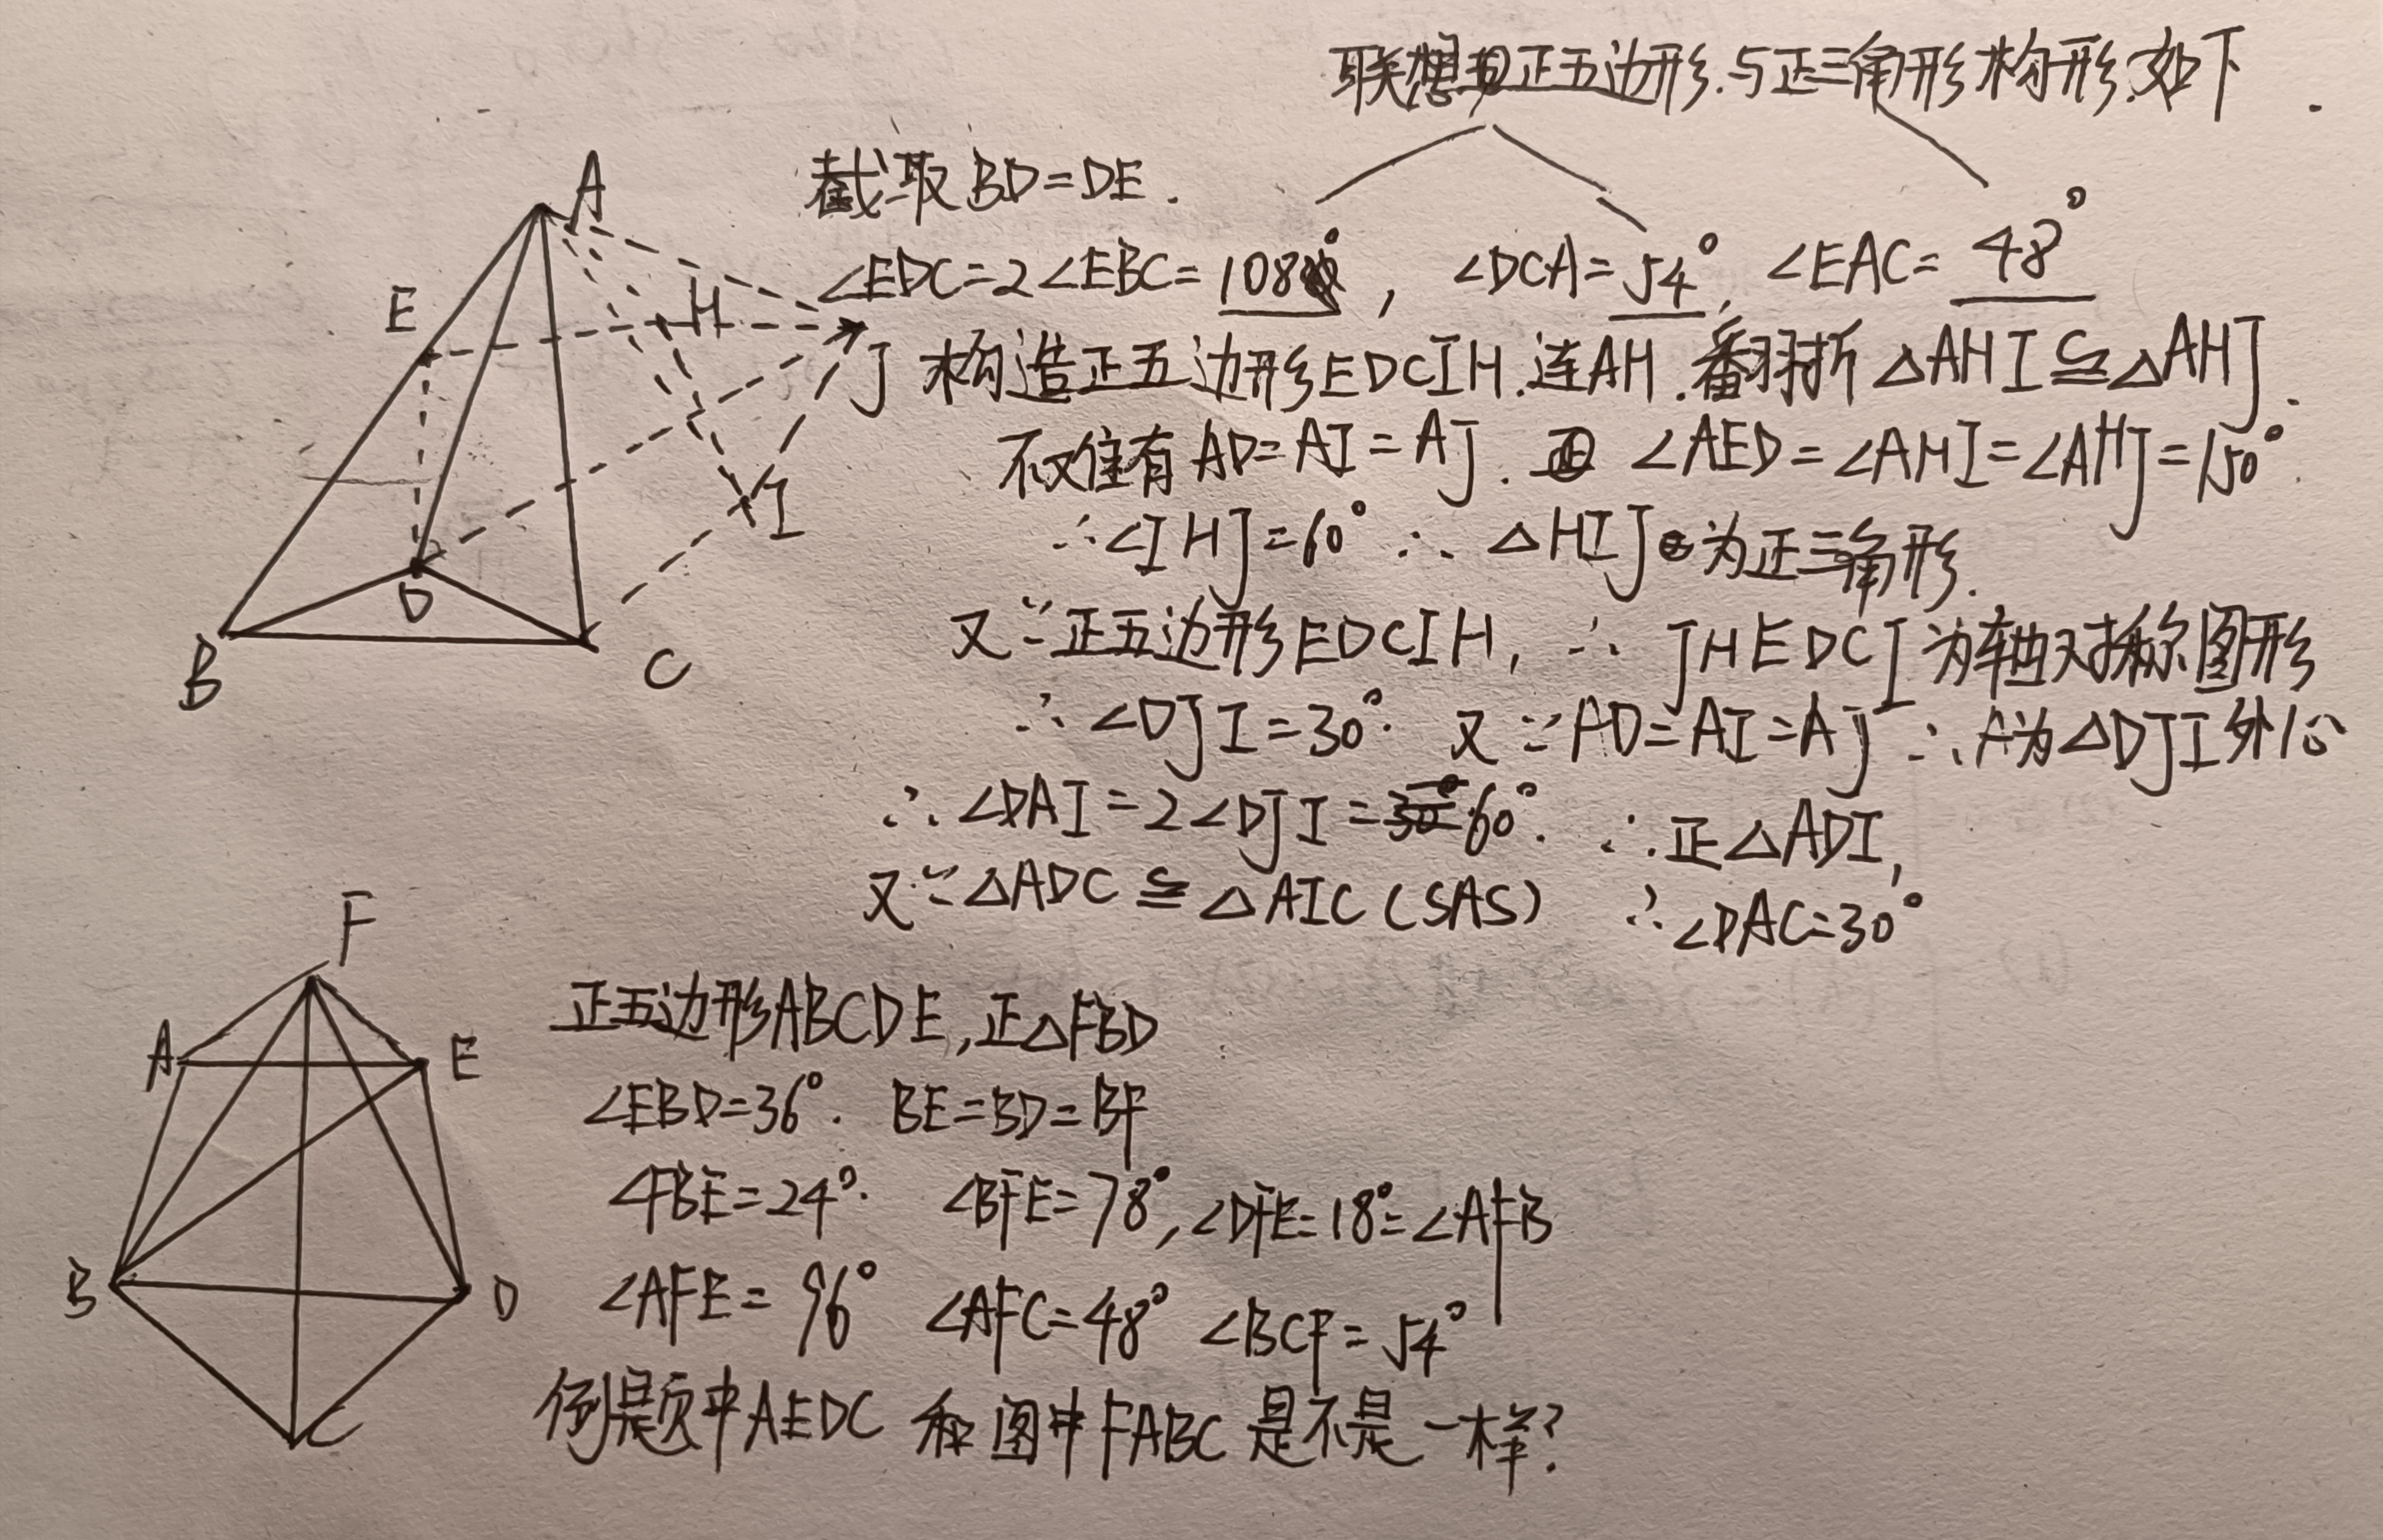 联想到正五边形.与正三角形构形.如下.
截取BD=DE.
∠EDC=2∠EBC=108°, ∠DCA=54°, ∠EAC=48°
构造正五边形EDCIH.连AH.翻折△AHI≌△AHJ.
不仅有AD=AI=AJ. 且∠AED=∠AHI=∠AHJ=150°.
∴∠IHJ=60° ∴△HIJ为正三角形.
又∵正五边形EDCIH, ∴JHEDCJ为轴对称图形
∴∠DJI=30°. 又∵AD=AI=AJ ∴A为△DJI外心
∴∠DAI=2∠DJI=60°. ∴正△ADI,
又∵△ADC≌△AIC(SAS) ∴∠DAC=30°
A
E
H
J
I
D
B
C
F
A
E
B
D
C
正五边形ABCDE,正△FBD
∠EBD=36°. BE=BD=BF
∠FBE=24°. ∠BFE=78°,∠DFE=18°=∠AFB
∠AFE=96° ∠AFC=48° ∠BCF=54°
例题中AEDC和图中FABC是不是一样?